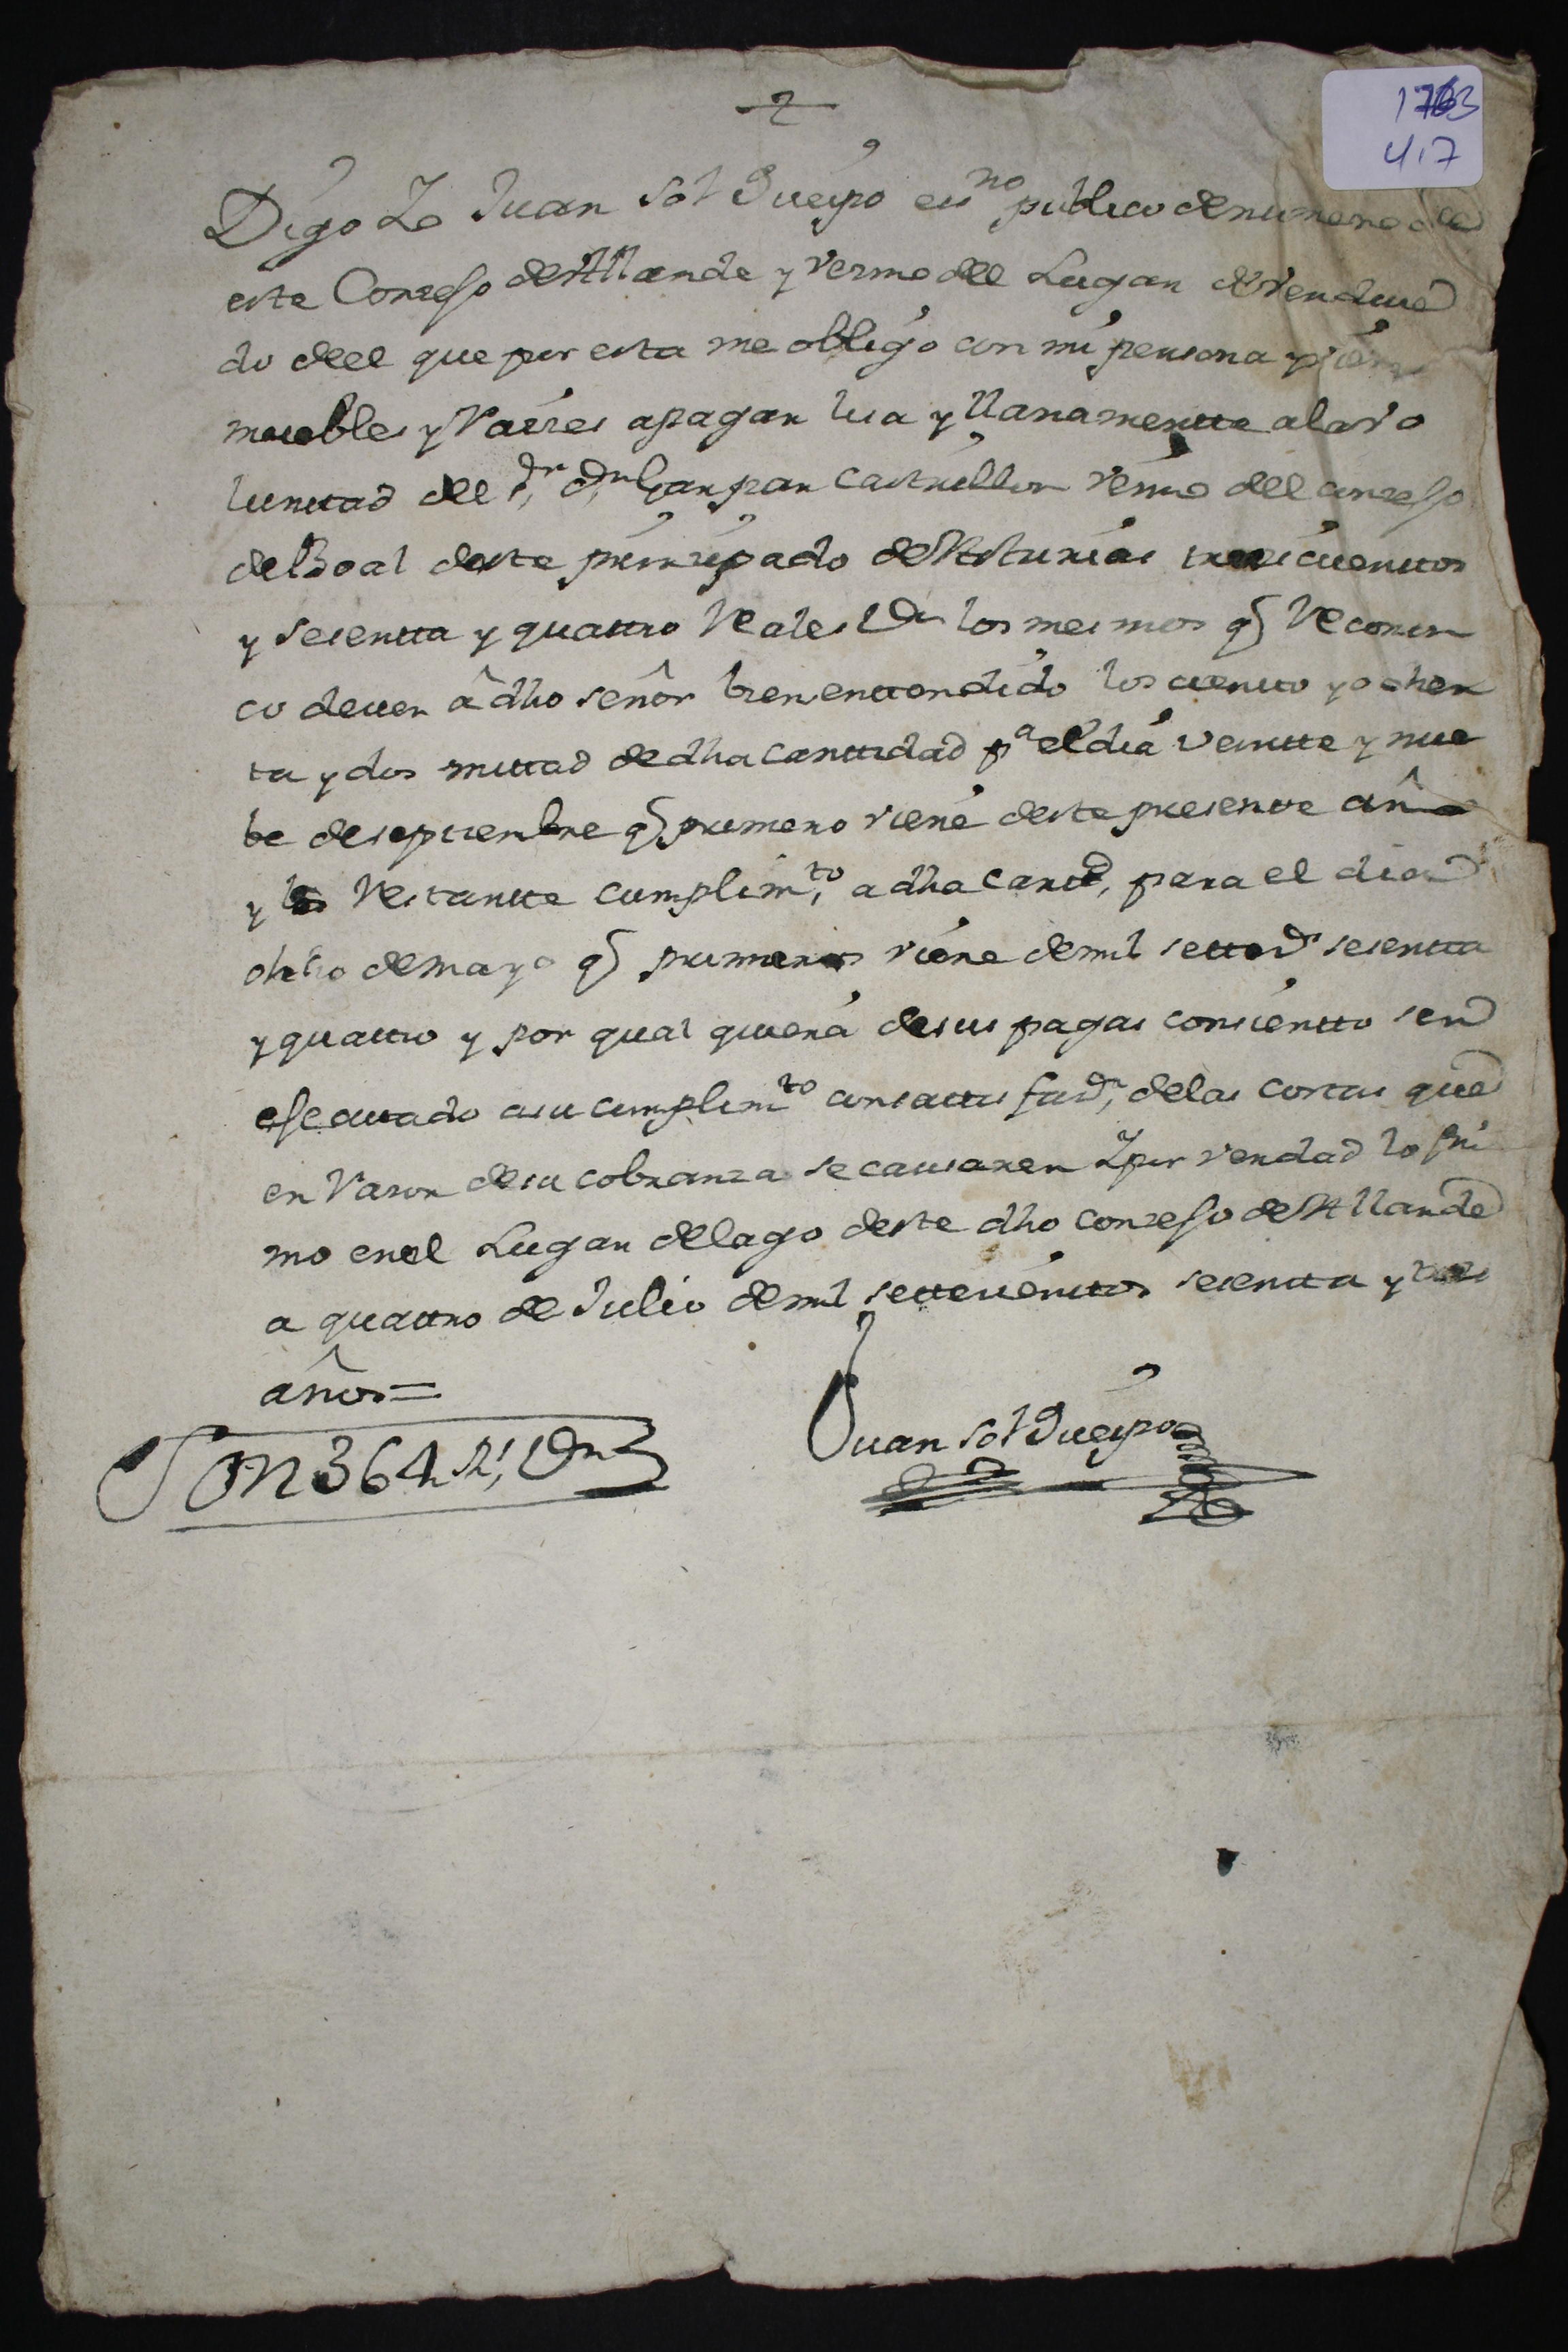 1763
417
Digo Yo Juan Sol Queipo essno publico de numero de
este Conzejo de Allande y vezino del Lugar de
do del que por esta me obligo con mi persona y vienes
muebles y Raizes a pagar lisa y llanamentte a la vo
lunttad del Sr Dn Gaspar Castrillon vezino del conzejo
del Boal deste prinzipado de Astturias trescienttos
y sesentta y quattro Reales Vn los mesmos q Reconoz
co dever a dho señor bien enttendido los cientto y ochen
ta y dos mittad de dha canttidad pa el dia veintte y nue
be de septiembre q primero viene deste presente año
y Restantte cumplimto a dha cantd, para el dia
ocho de mayo q primero viene de mil settcs sesentta
y quattro y por qual quiera de sus pagas consientto ser
ejecuttado a su cumplimto con sattisfazn, de las costas que
en Razon de su cobranza se causaren Y por verdad lo fir
mo en el Lugar de lago deste dho conzejo de Allande
a quattro de Julio de mil settecienttos sesentta y tres
años=
Son 364 Rs, Vn
Juan Sol Queipo